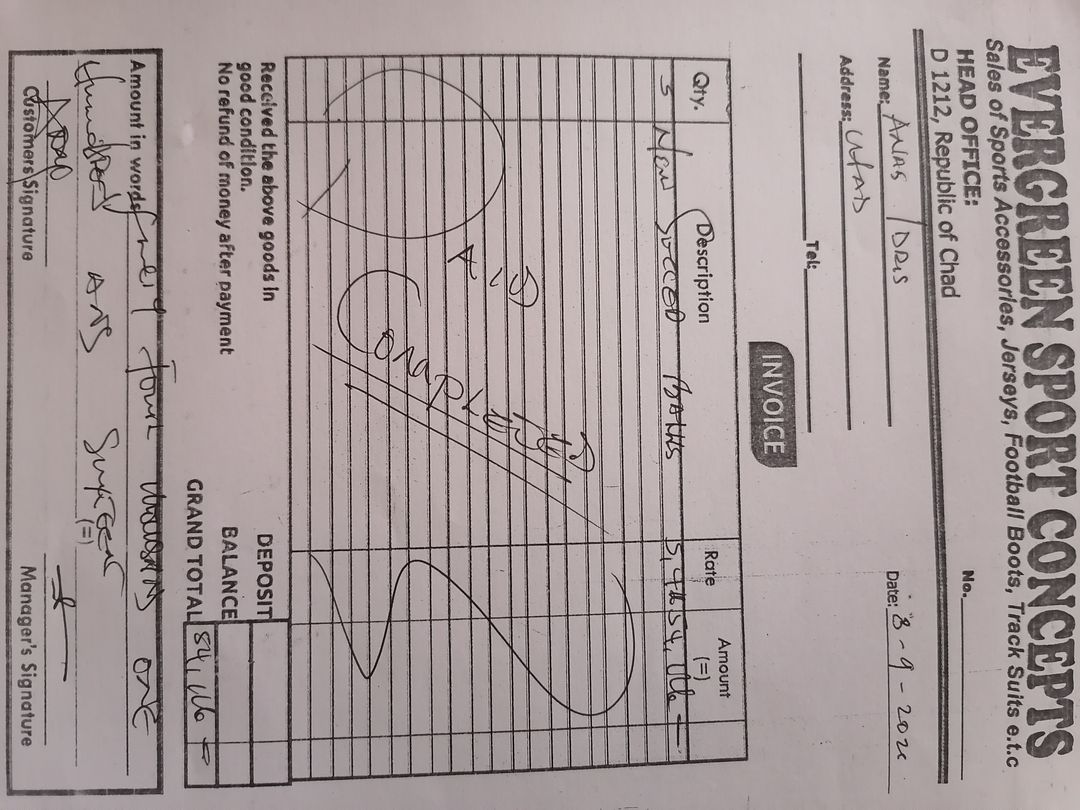 EVERGREEN SPORT CONCEPTS
Sales of Sports Accessories, Jerseys, Football Boots, Track Suits e.t.c
HEAD OFFICE:
D 1212, Republic of Chad
No.
Name: ANAS IDRIS
Date: 8-9-202
Address:
Tel:
INVOICE
Qty. Description Rate Amount
(=)
New Soccer
Received the above goods in
good condition.
No refund of money after payment
DEPOSIT
BALANCE
GRAND TOTAL 84,116 =
Amount in words Eighty four thousand one
Hundred and Sixteen
(=)
Customers Signature Manager's Signature